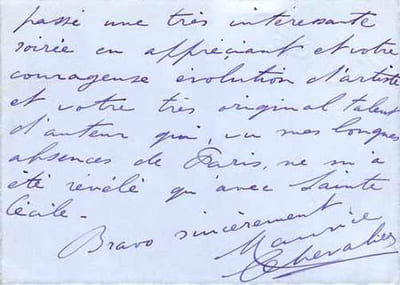 passé une très intéressante
soirée en appréciant et votre
courageuse évolution d'artiste
et votre très original talent
d'auteur qui, vu mes longues
absences de Paris, ne m'a
été révélé qu'avec Sainte
Cécile -
Bravo sincèrement
Maurice
Chevalier